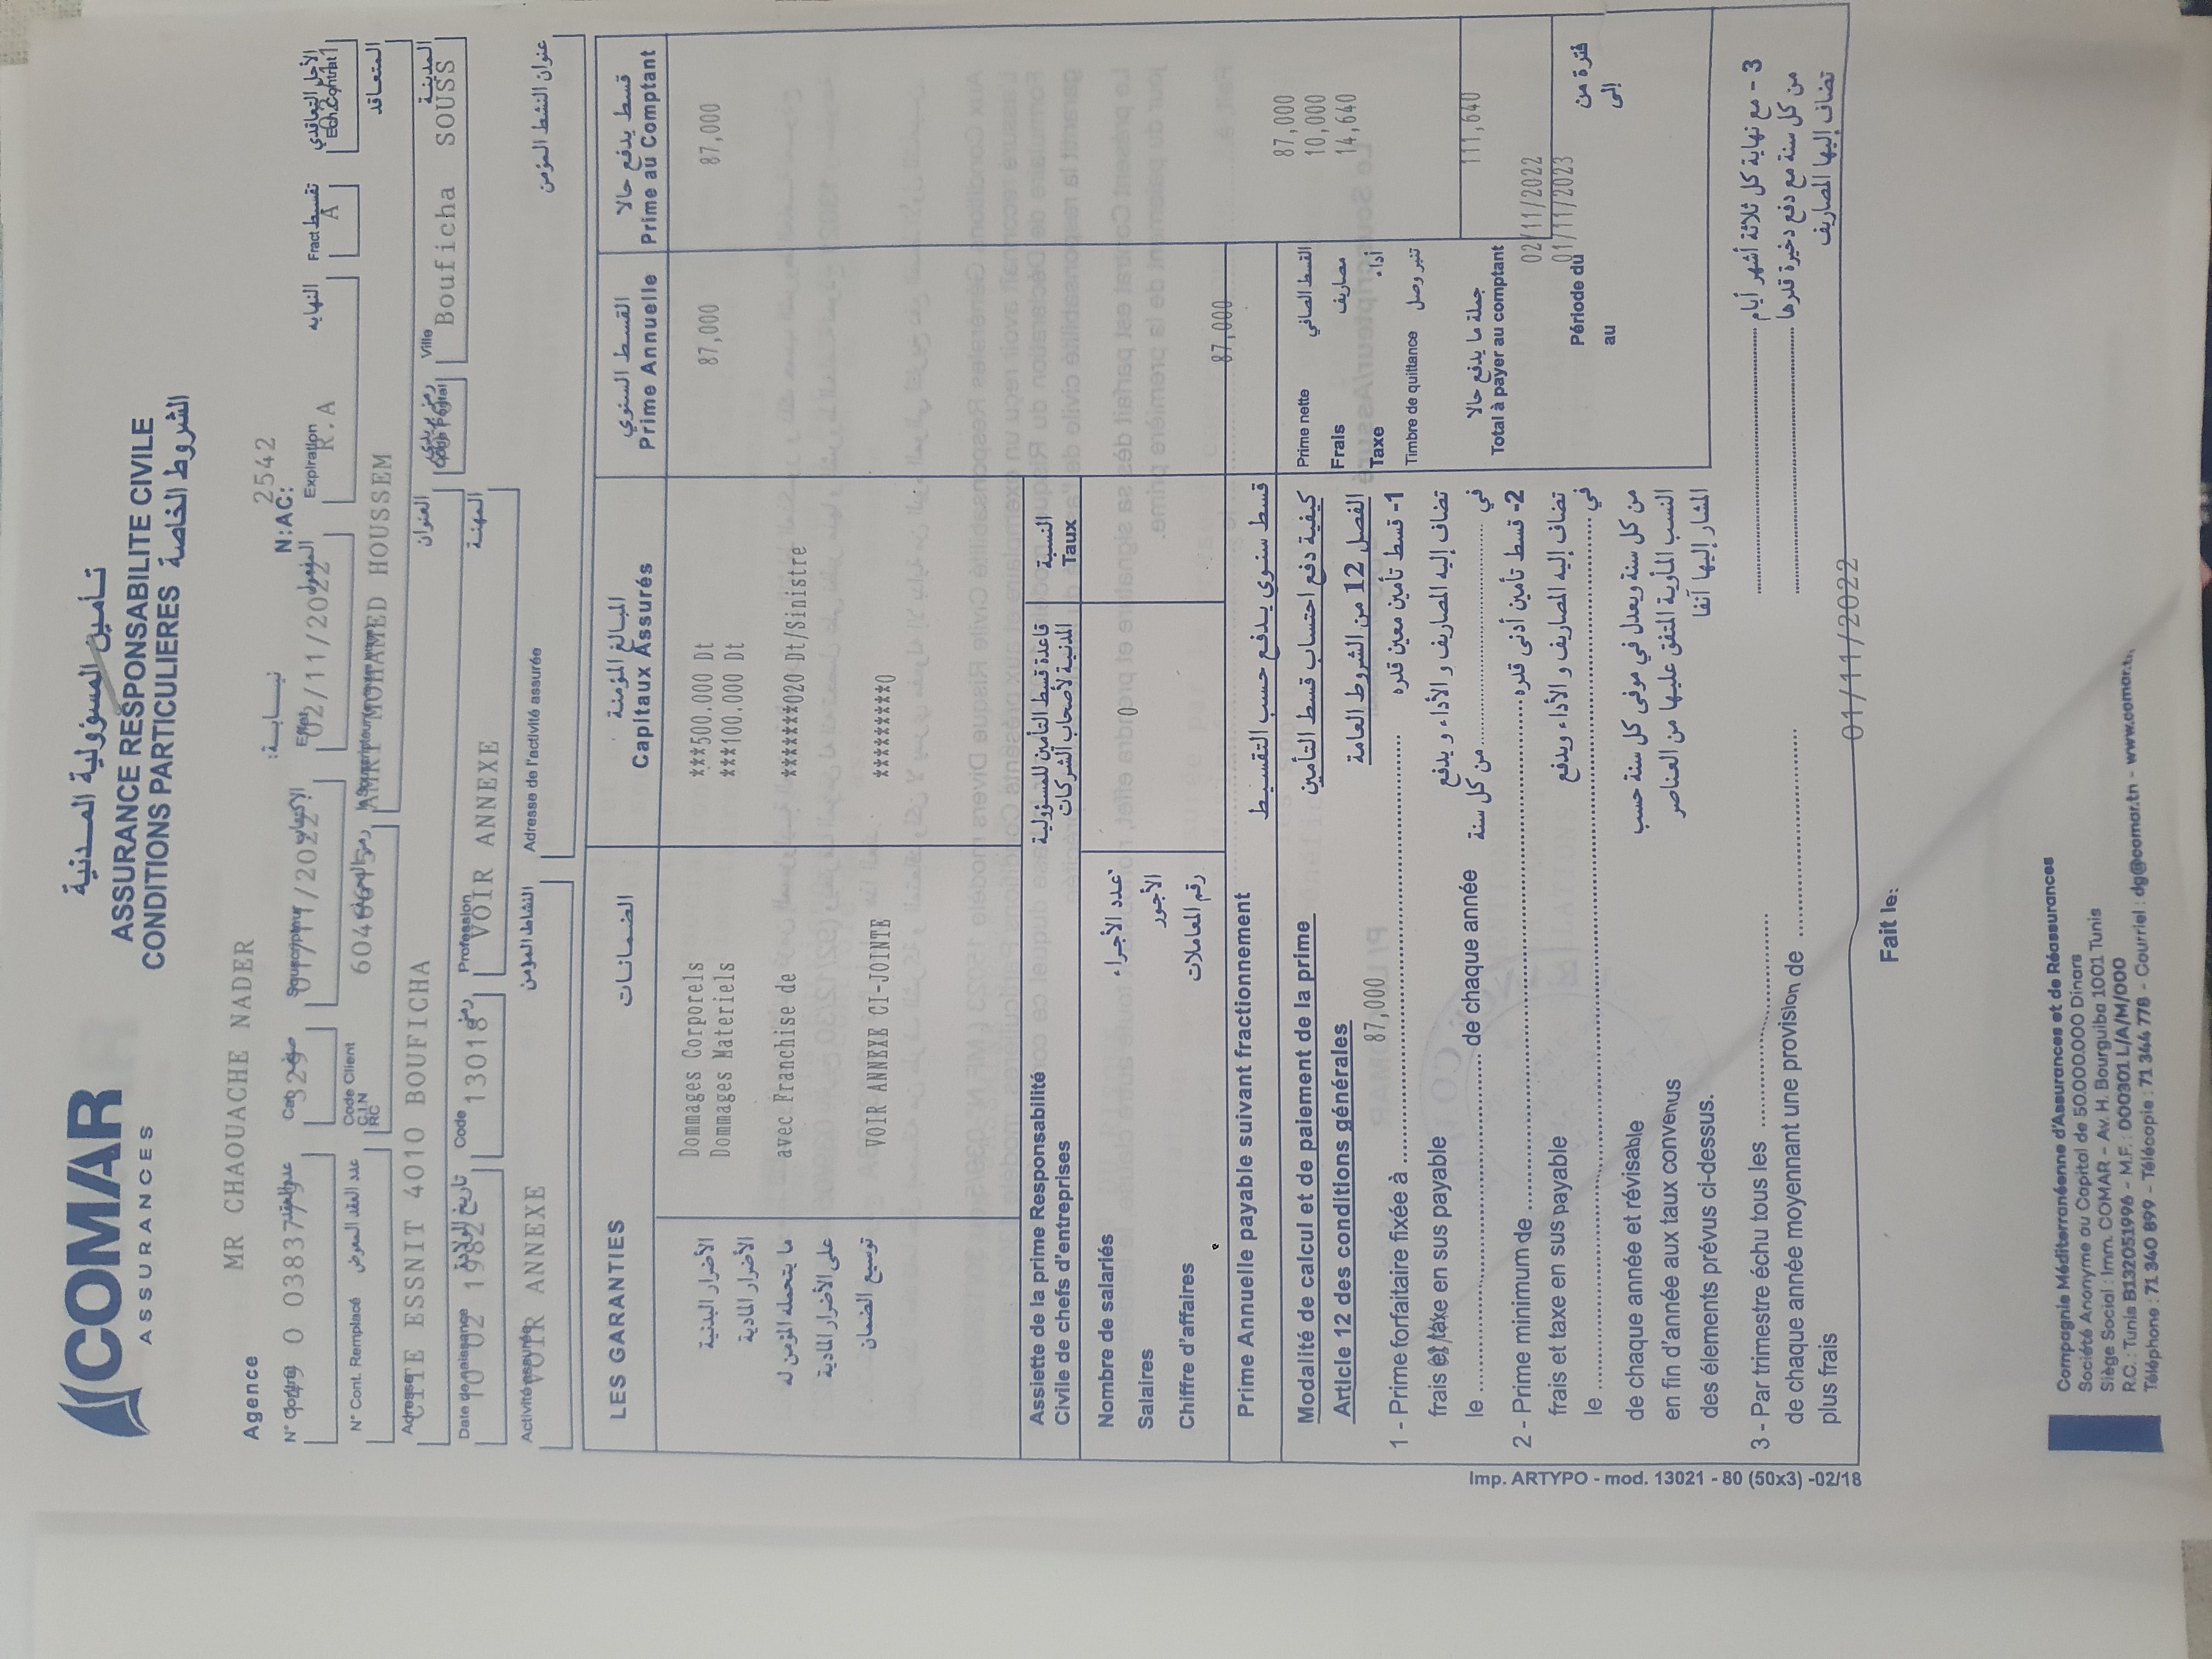 COMAR
ASSURANCES
تأمين المسؤولية المدنية
ASSURANCE RESPONSABILITE CIVILE
CONDITIONS PARTICULIERES الشروط الخاصة
Agence MR CHAOUACHE NADER نيابة: N:AC: 2542
N° Contrat Cat Souscription Effet Expiration النهاية Fract تقسيط الأجل التعاقدي Ech.Contrat
01/11/2022 02/11/2022 R.A A
N° Cont. Remplacé عدد العقد المعوض Code Client C.I.N RC المتعاقد
AMRI MOHAMED HOUSSEM
Adresse العنوان Ville المدينة
CITE ESSNIT 4010 BOUFICHA Bouficha SOUSS
Date de naissance تاريخ الولادة Code رمز Profession المهنة
10 02 1982 13018 VOIR ANNEXE
Activité assurée النشاط المؤمن Adresse de l'activité assurée عنوان النشط المؤمن
VOIR ANNEXE
LES GARANTIES الضمانات
المبالغ المؤمنة Capitaux Assurés
القسط السنوي Prime Annuelle
قسط يدفع حالا Prime au Comptant
الأضرار البدنية Dommages Corporels ***500.000 Dt 87,000 87,000
الأضرار المادية Dommages Materiels ***100.000 Dt
ما يتحمله المؤمن له avec Franchise de *******020 Dt/Sinistre
على الأضرار المادية
توسيع الضمان VOIR ANNEXE CI-JOINTE *********0
Assiette de la prime Responsabilité قاعدة قسط التأمين للمسؤولية النسبة
Civile de chefs d'entreprises المدنية لأصحاب الشركات Taux
Nombre de salariés عدد الأجراء 0
Salaires الأجور
Chiffre d'affaires رقم المعاملات
Prime Annuelle payable suivant fractionnement قسط سنوي يدفع حسب التقسيط 87,000
Modalité de calcul et de paiement de la prime كيفية دفع احتساب قسط التأمين
Article 12 des conditions générales الفصل 12 من الشروط العامة
Prime nette القسط الصافي 87,000
Frais مصاريف 10,000
Taxe أداء 14,640
Timbre de quittance تنبر وصل
جملة ما يدفع حالا
Total à payer au comptant 111,640
02/11/2022
Période du 01/11/2023 فترة من
au إلى
1 - Prime forfaitaire fixée à 87,000 1- قسط تأمين معين قدره
frais et taxe en sus payable تضاف إليه المصاريف و الأداء و يدفع
le de chaque année من كل سنة في
2 - Prime minimum de 2- قسط تأمين أدنى قدره
frais et taxe en sus payable تضاف إليه المصاريف و الأداء ويدفع
le في
de chaque année et révisable من كل سنة ويعدل في موفى كل سنة حسب
en fin d'année aux taux convenus النسب المأوية المتفق عليها من العناصر
des élements prévus ci-dessus. المشار إليها آنفا
3 - Par trimestre échu tous les 3 - مع نهاية كل ثلاثة أشهر أيام
de chaque année moyennant une provision de من كل سنة مع دفع دخيرة قدرها
plus frais تضاف إليها المصاريف
01/11/2022
Imp. ARTYPO - mod. 13021 - 80 (50x3) -02/18
Fait le:
Compagnie Méditerranéenne d'Assurances et de Réassurances
Société Anonyme au Capital de 50.000.000 Dinars
Siège Social : Imm. COMAR - Av. H. Bourguiba 1001 Tunis
R.C. : Tunis B132051996 - M.F. : 000301 L/A/M/000
Téléphone : 71 340 899 - Télécopie : 71 344 778 - Courriel : dg@comar.tn - www.comar.tn